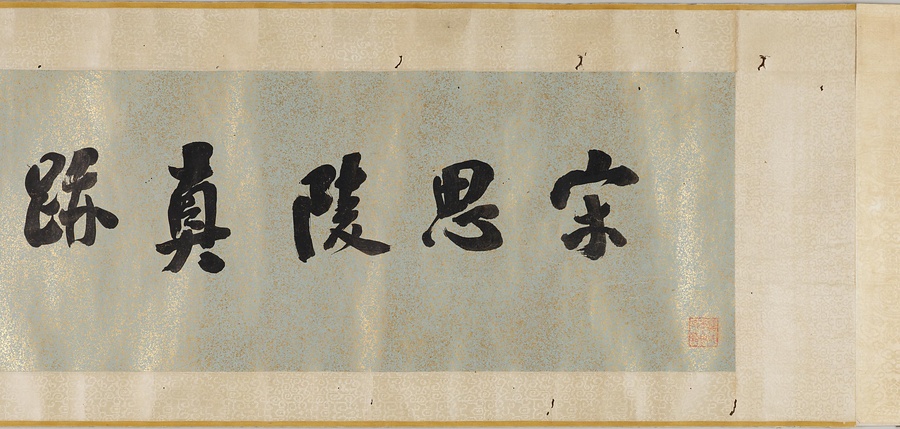 宋思陵真跡